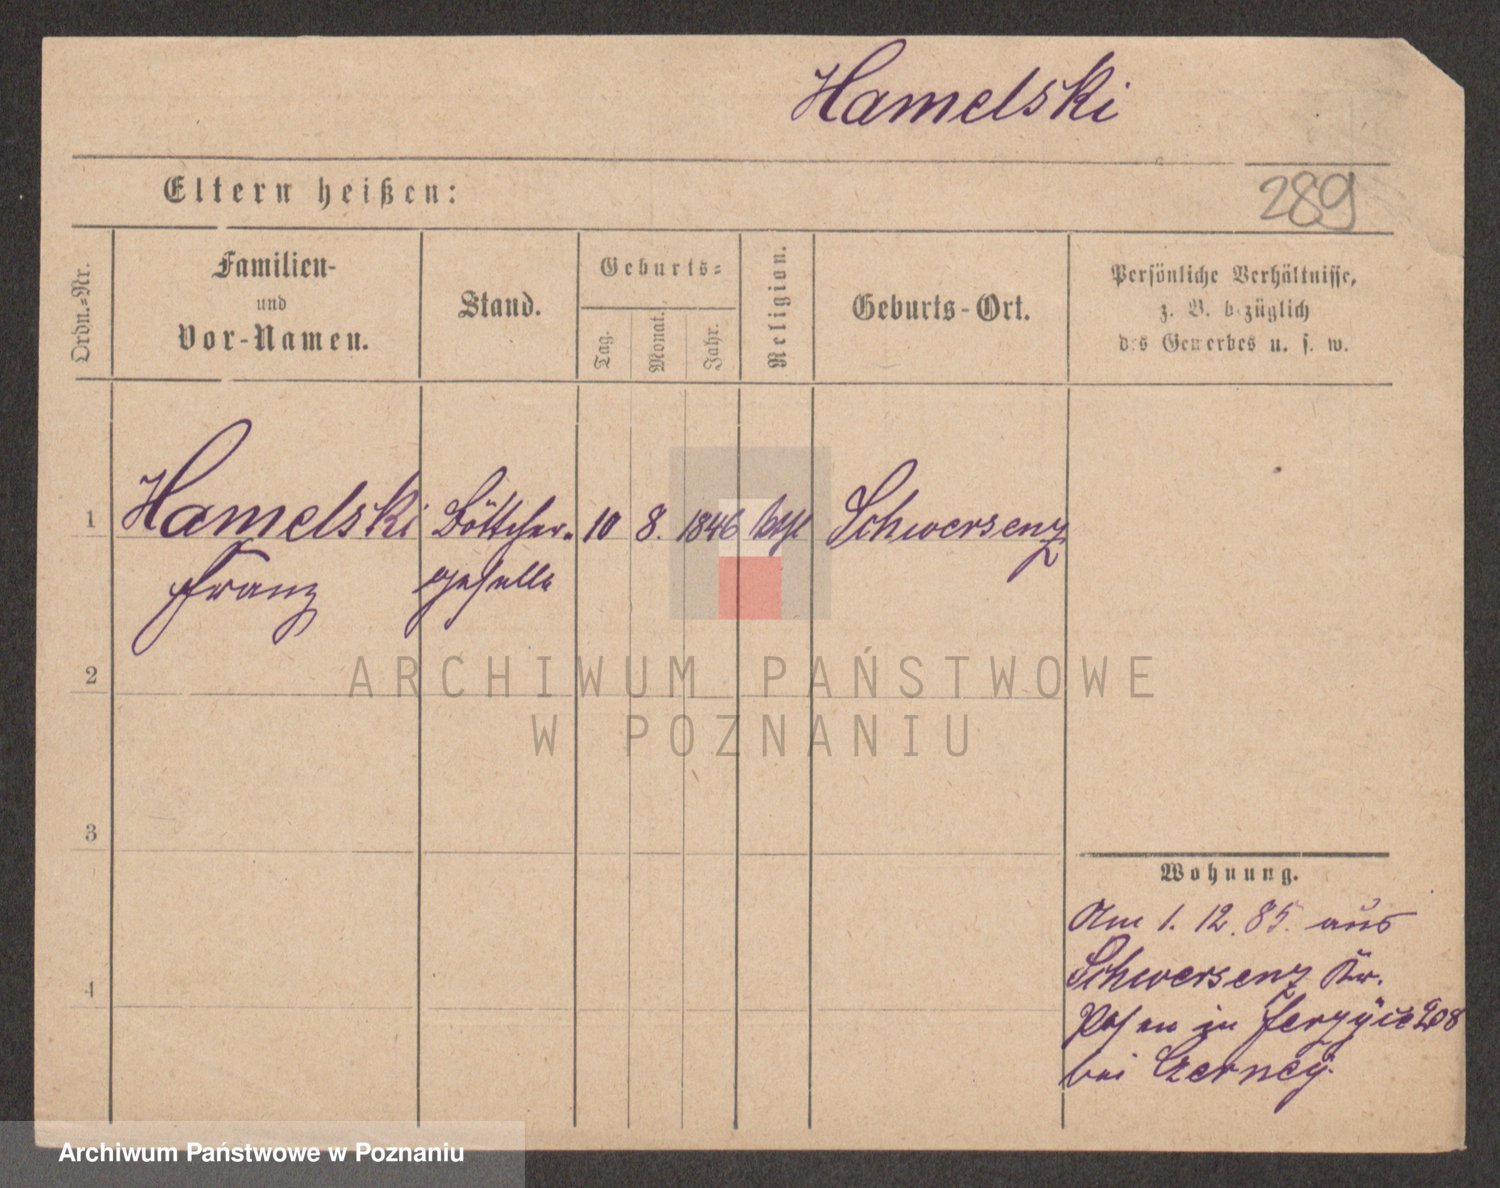 Hamelski
Eltern heißen:
289
Ordn.=Nr.
Familien-
und
Vor-Namen.
Stand.
Geburts=
Tag.
Monat.
Jahr.
Religion.
Geburts-Ort.
Persönliche Verhältnisse,
z. B. bezüglich
des Gewerbes u. s. w.
1 Hamelski Böttcher- 10 8. 1846 kath Schwersenz
Franz geselle
2
3
4
Wohnung.
Am 1. 12. 85. aus
Schwersenz Kr.
Posen zu Jerzyce 208
bei Czerney.
ARCHIWUM PAŃSTWOWE
W POZNANIU
Archiwum Państwowe w Poznaniu